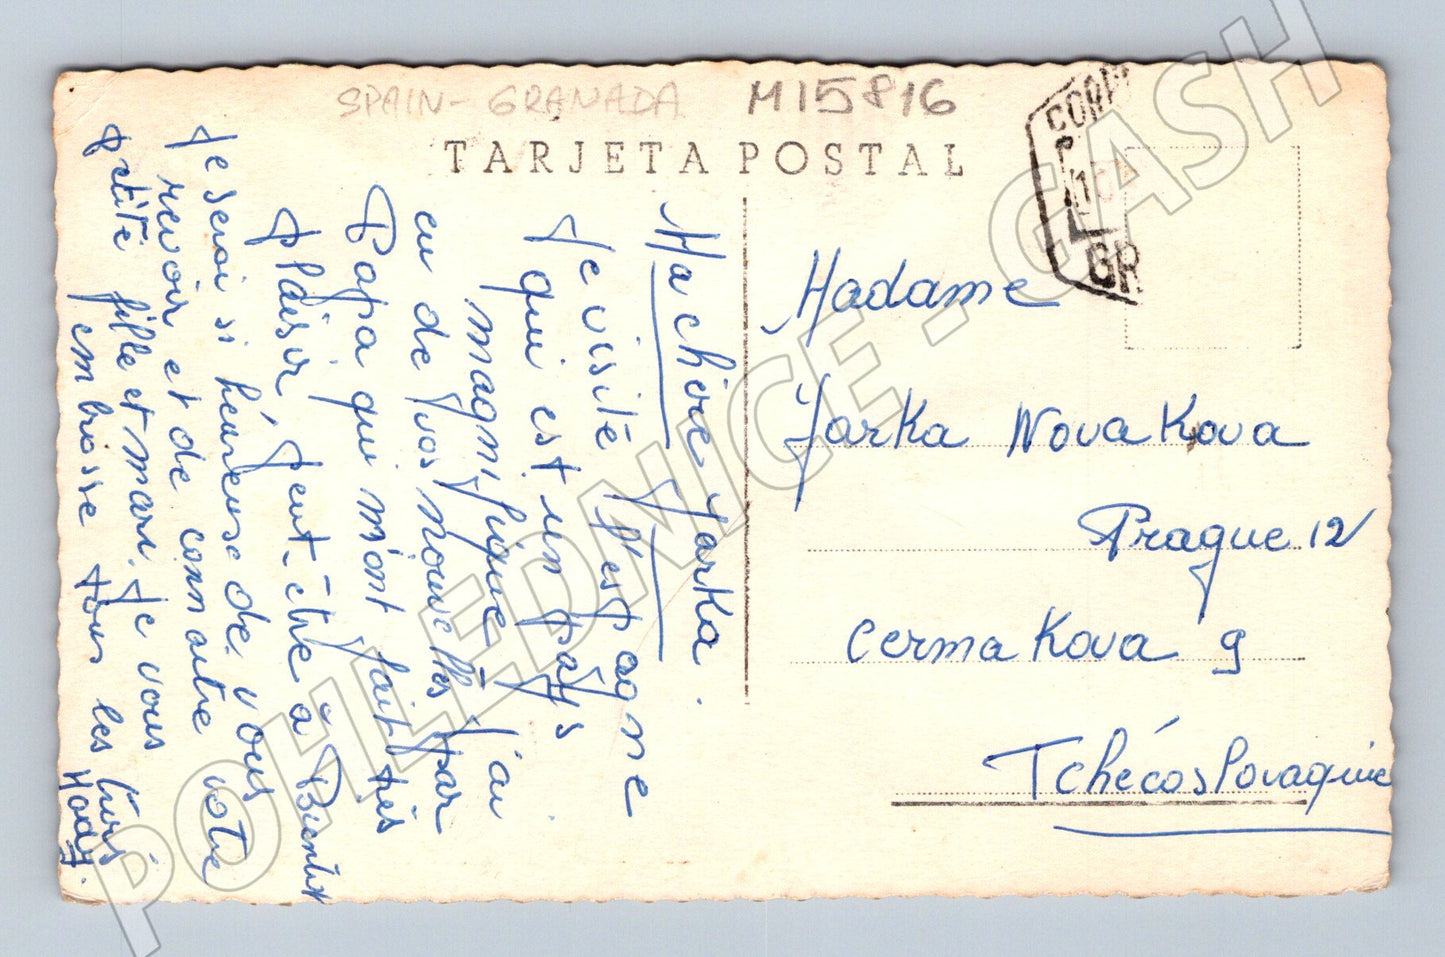 SPAIN - GRANADA M15816
TARJETA POSTAL
Ma chère Yarka.
Je visite l'Espagne
qui est un pays
magnifique - J'ai
eu de vos nouvelles par
Papa qui m'ont fait très
plaisir, peut-être à Bientôt
Je serai si héureuse de vous
revoir et de connaître votre
petite fille et mari. Je vous
embrasse tous les trois
Mady.
CORR
GR
Madame
Yarka Novakova
Prague 12
Cermakova 9
Tchécoslovaquie
POHLEDNICE - CASH